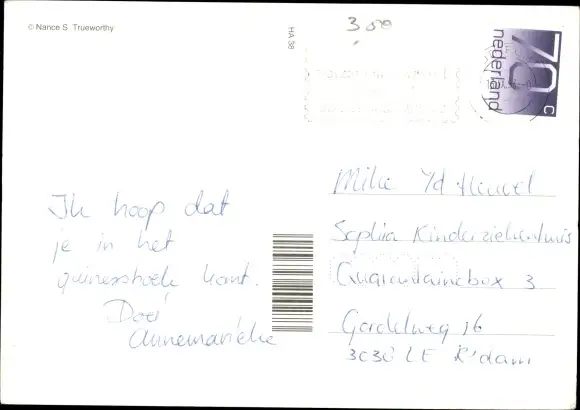 © Nance S. Trueworthy
HA 38
3,50
70
c
nederland
Ik hoop dat
je in het
komt.
Doei
Annemarieke
v/d Heuvel
Sophia Kinderziekenhuis
Quarantainebox 3
Gordelweg 16
3038 LE R'dam